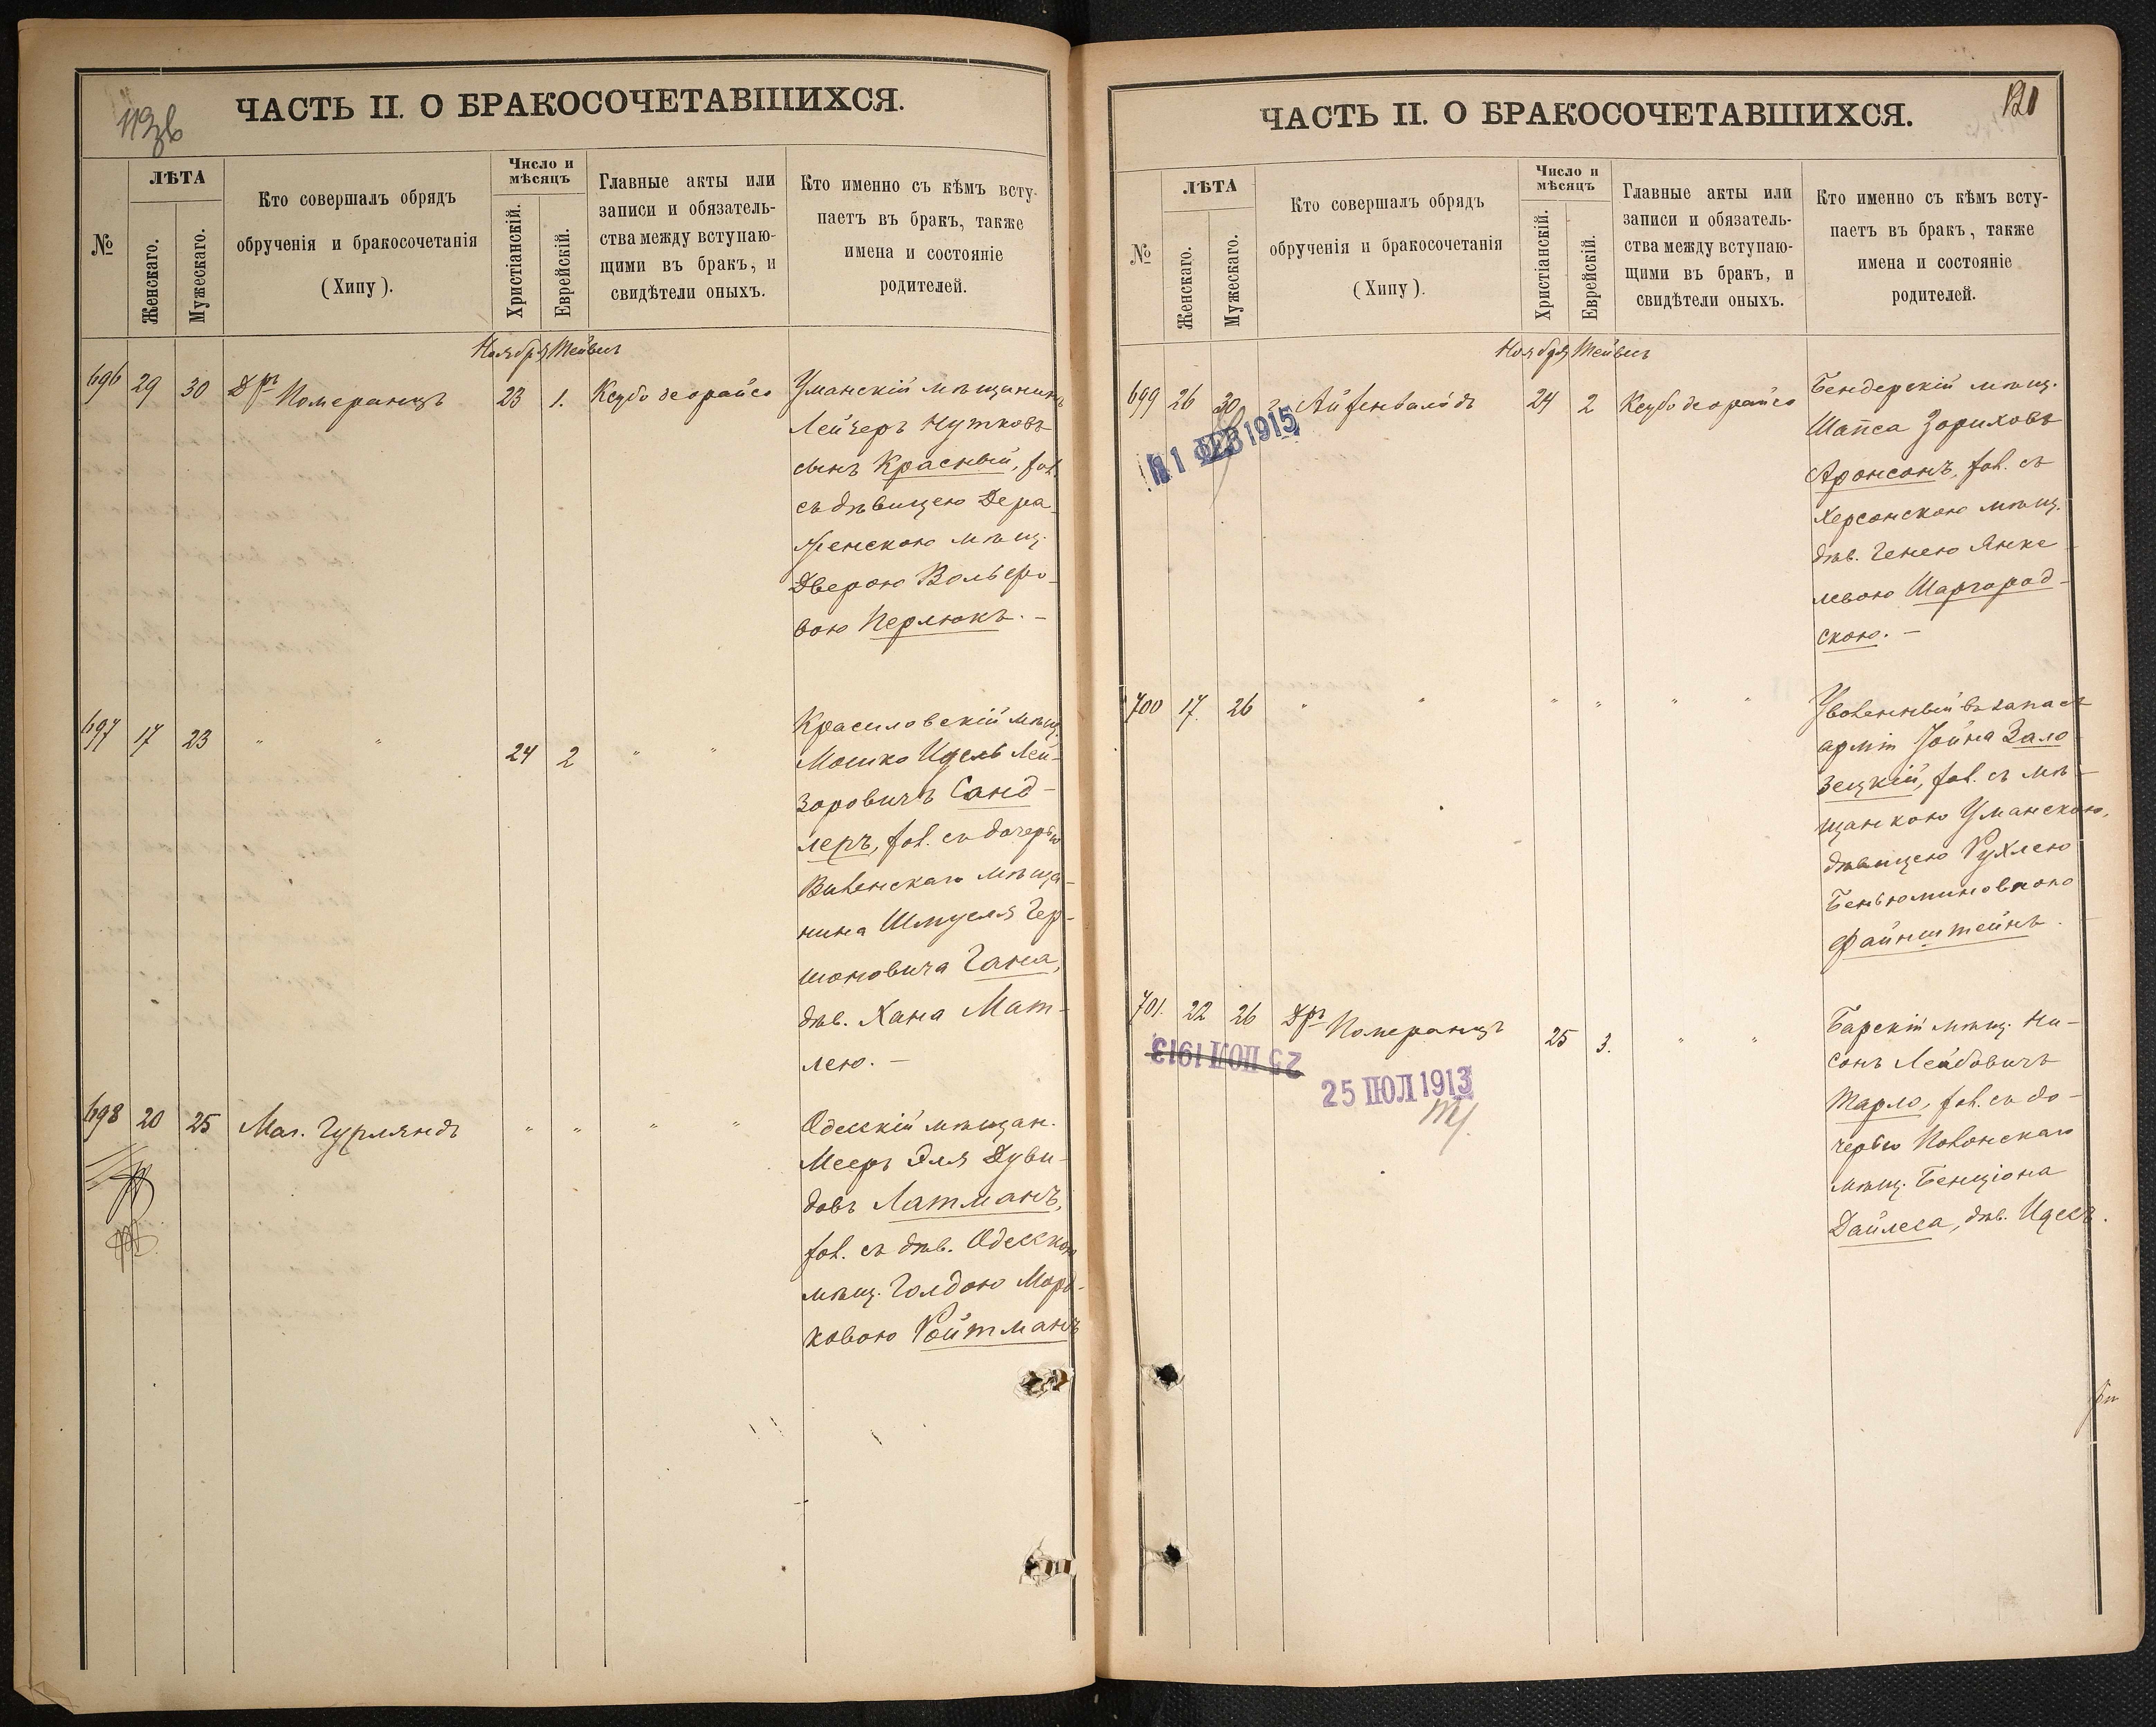 ЧАСТЬ II. О БРАКОСОЧЕТАВШИХСЯ.
№
ЛѢТА
Женскаго.
Мужескаго.
Кто совершалъ обрядъ
обрученія и бракосочетанія
(Хипу).
Число и
мѣсяцъ
Христіанскій.
Еврейскій.
Главные акты или
записи и обязатель-
ства между вступаю-
щими въ бракъ, и
свидѣтели оныхъ.
Кто именно съ кѣмъ всту-
паетъ въ бракъ, также
имена и состояніе
родителей.
Ноября Тейвисъ
696 29 30 Дръ Померанцъ 23 1. Ксубо деорайсо Уманскій мѣщанинъ
Лейзеръ Нутковъ
сынъ Красный, хол.
съ дѣвицею Дера-
жненскою мѣщ.
Дверою Вольфо-
вою Перлюкъ. —
697 17 23 " " 24 2 " " Красиловскій мѣщ.
Мошко Идель Лей-
зоровичъ Санд-
леръ, хол. съ дочерью
Виленскаго мѣща-
нина Шмуеля Гер-
шоновича Гана,
дѣв. Хана Мат-
лею. —
698 20 25 Маг. Гурляндъ " " " " Одесскій мѣщан.
Мееръ Эля Дуви-
довъ Латманъ,
хол. съ дѣв. Одесскою
мѣщ. Голдою Морд-
ковою Ройтманъ
ЧАСТЬ II. О БРАКОСОЧЕТАВШИХСЯ.
120
№
ЛѢТА
Женскаго.
Мужескаго.
Кто совершалъ обрядъ
обрученія и бракосочетанія
(Хипу).
Число и
мѣсяцъ
Христіанскій.
Еврейскій.
Главные акты или
записи и обязатель-
ства между вступаю-
щими въ бракъ, и
свидѣтели оныхъ.
Кто именно съ кѣмъ всту-
паетъ въ бракъ, также
имена и состояніе
родителей.
Ноября Тейвисъ
699 26 30 Г. Айзенвальдъ 24 2 Ксубо деорайсо Бендерскій мѣщ.
11 ФЕВ 1915
Шапса Зориховъ
Аронсонъ, хол. съ
Херсонскою мѣщ.
дѣв. Генею Янке-
левою Шаргород-
скою. —
700 17. 26 " " " " " " Уволенный въ запасъ
арміи Іойна Зало-
зецкій, хол. съ мѣ-
щанкою Уманскою,
дѣвицею Рухлею
Беньюминовною
Файнштейнъ.
701. 22 26 Дръ Померанцъ 25 3. " " Барскій мѣщ. Ни-
25 ІЮЛ 1913
25 ІЮЛ 1913
сонъ Лейбовичъ
Тарло, хол. съ до-
черью
мѣщ. Бенціона
Дайлеса, дѣв. Идесъ.